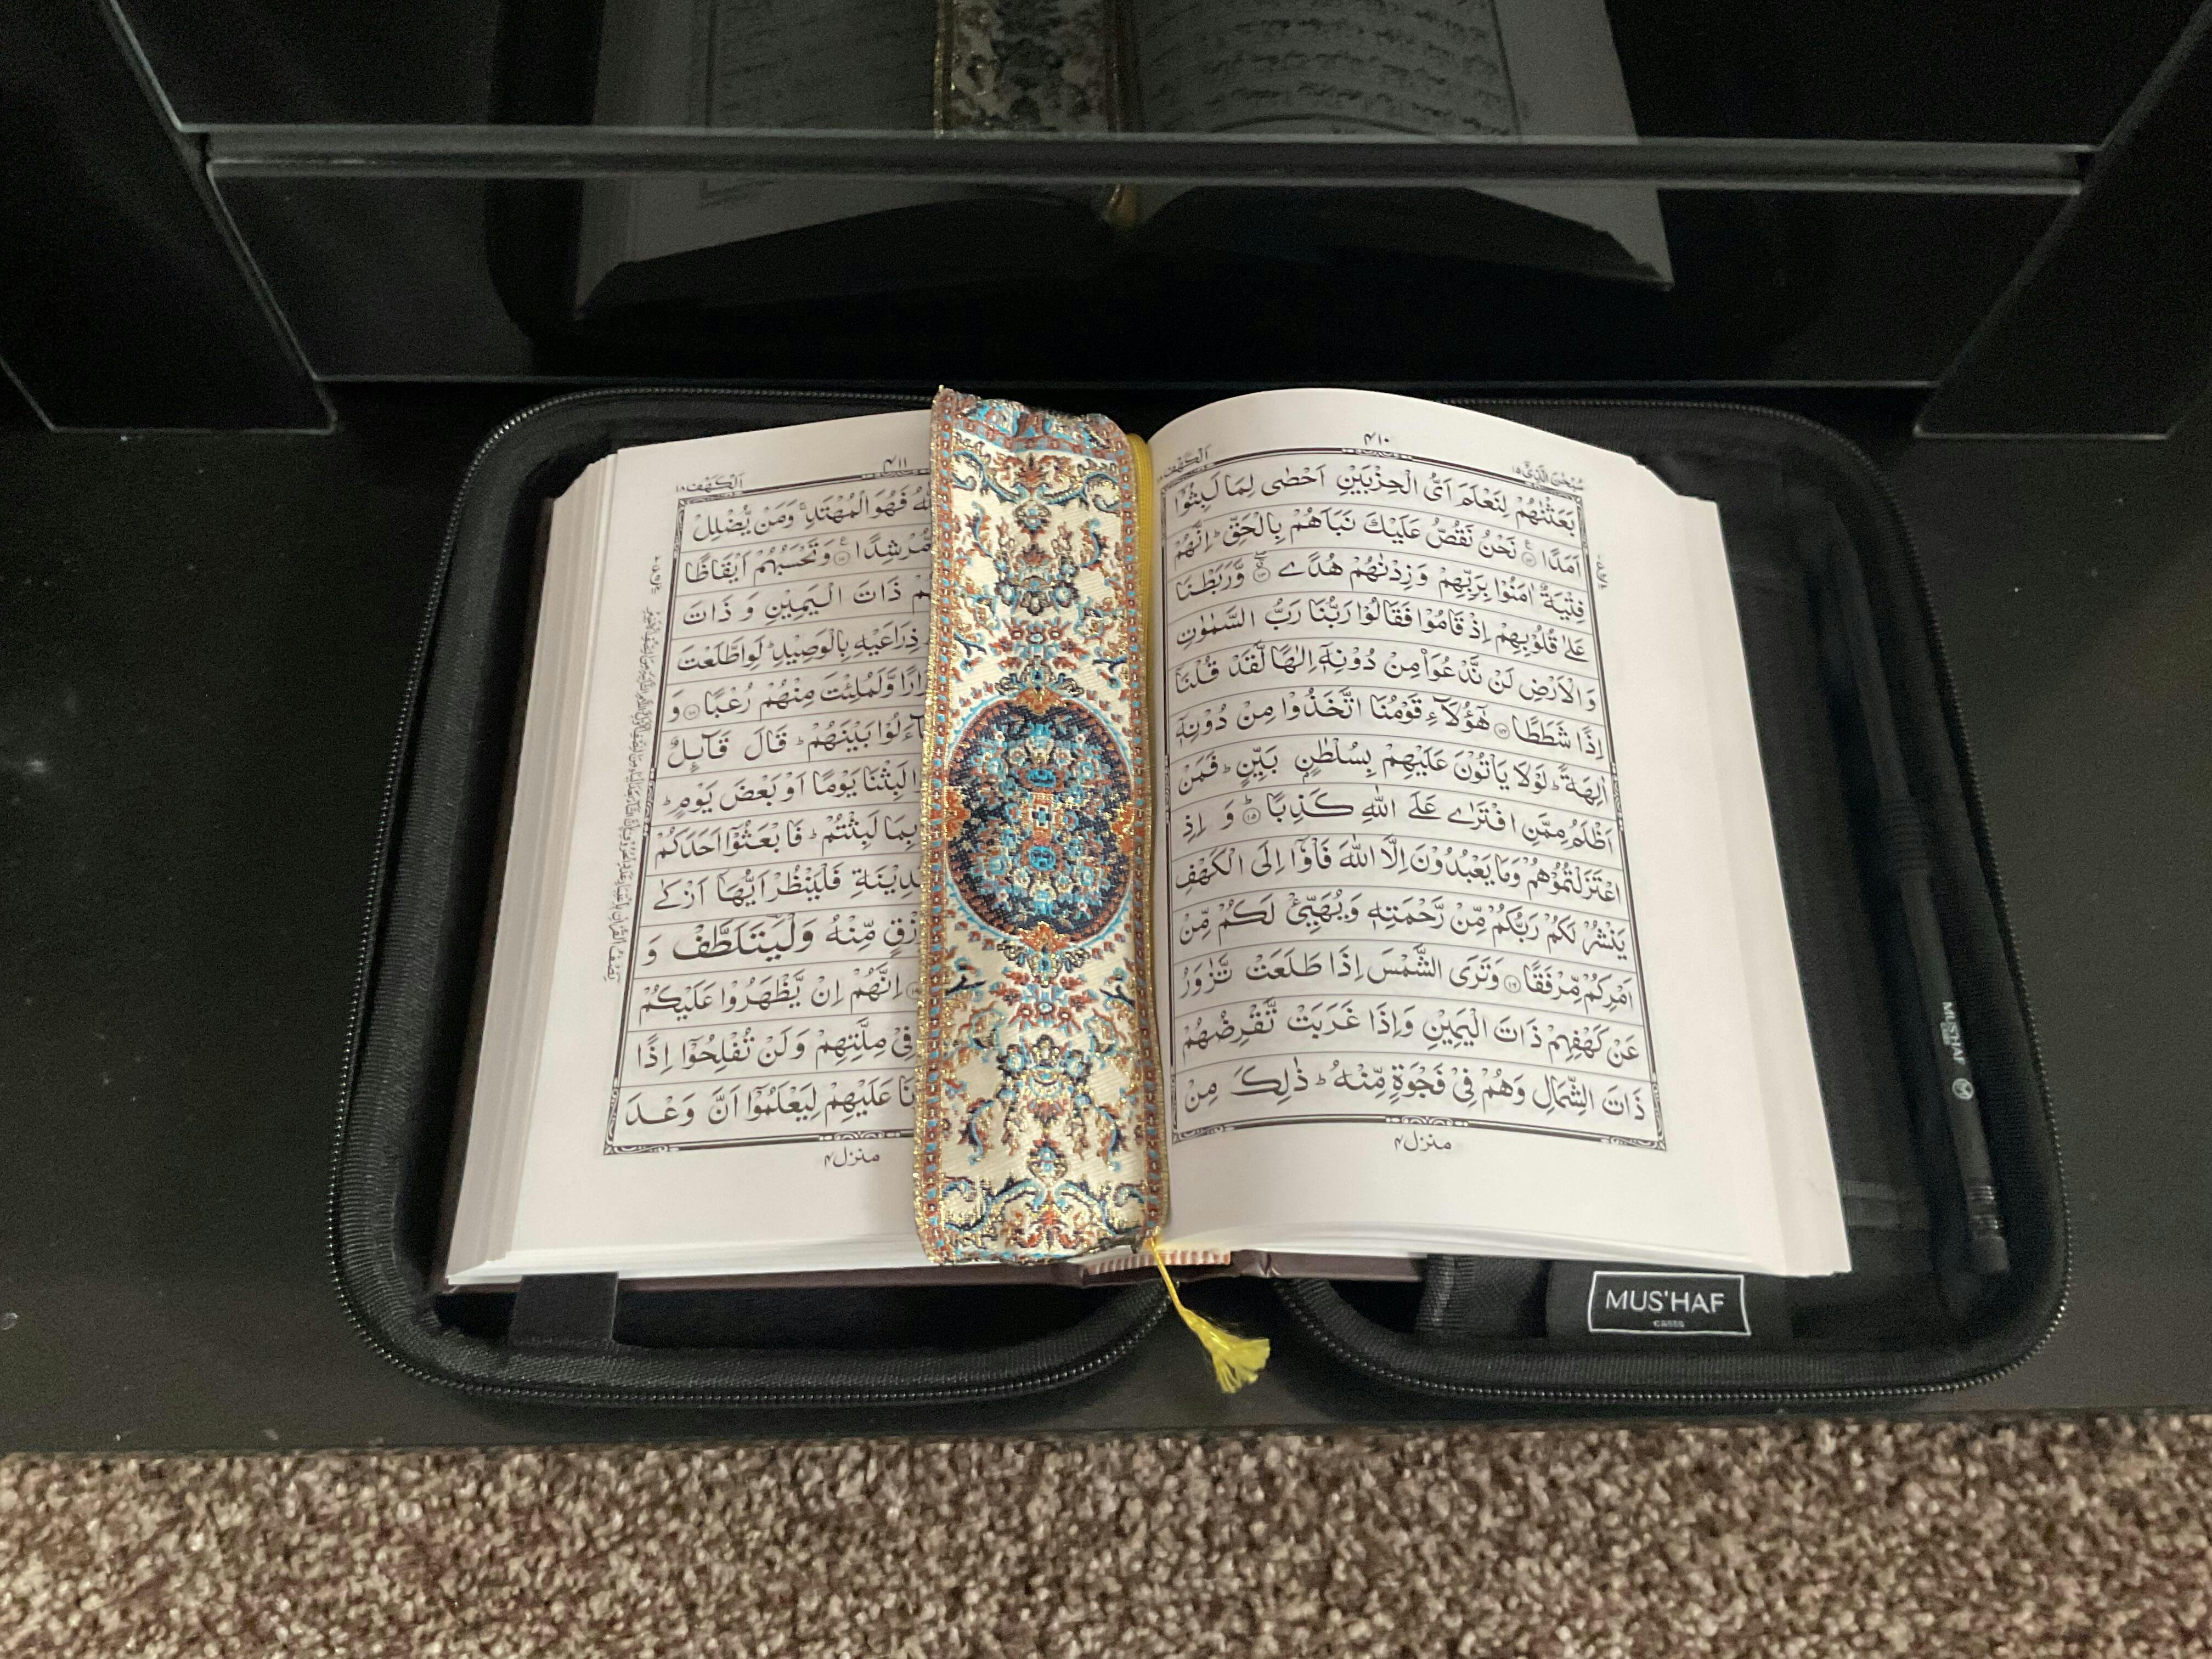 سُبْحٰنَ الَّذِيْۤ ١٥
۴۱۰
اَلْكَهْف ١٨
بَعَثْنٰهُمْ لِنَعْلَمَ اَىُّ الْحِزْبَيْنِ اَحْصٰى لِمَا لَبِثُوْۤا
اَمَدًا ۧ ١٢ نَحْنُ نَقُصُّ عَلَيْكَ نَبَاَهُمْ بِالْحَقِّ ؕ اِنَّهُمْ
فِتْيَةٌ اٰمَنُوْا بِرَبِّهِمْ وَزِدْنٰهُمْ هُدًى ۖ ١٣ وَّرَبَطْنَا
عَلٰى قُلُوْبِهِمْ اِذْ قَامُوْا فَقَالُوْا رَبُّنَا رَبُّ السَّمٰوٰتِ
وَالْاَرْضِ لَنْ نَّدْعُوَا۟ مِنْ دُوْنِهٖۤ اِلٰهًا لَّقَدْ قُلْنَاۤ
اِذًا شَطَطًا ١٤ هٰۤؤُلَآءِ قَوْمُنَا اتَّخَذُوْا مِنْ دُوْنِهٖۤ
اٰلِهَةً ؕ لَوْلَا يَاْتُوْنَ عَلَيْهِمْ بِسُلْطٰنٍۭ بَيِّنٍ ؕ فَمَنْ
اَظْلَمُ مِمَّنِ افْتَرٰى عَلَى اللّٰهِ كَذِبًا ؕ ١٥ وَ اِذِ
اعْتَزَلْتُمُوْهُمْ وَمَا يَعْبُدُوْنَ اِلَّا اللّٰهَ فَاْوٗۤا اِلَى الْكَهْفِ
يَنْشُرْ لَكُمْ رَبُّكُمْ مِّنْ رَّحْمَتِهٖ وَيُهَيِّئْ لَكُمْ مِّنْ
اَمْرِكُمْ مِّرْفَقًا ١٦ وَتَرَى الشَّمْسَ اِذَا طَلَعَتْ تَّزٰوَرُ
عَنْ كَهْفِهِمْ ذَاتَ الْيَمِيْنِ وَاِذَا غَرَبَتْ تَّقْرِضُهُمْ
ذَاتَ الشِّمَالِ وَهُمْ فِيْ فَجْوَةٍ مِّنْهُ ؕ ذٰلِكَ مِنْ
منزل۴
۴۱۱
اَلْكَهْف ١٨
فَهُوَ الْمُهْتَدِ ۚ وَمَنْ يُّضْلِلْ
مُّرْشِدًا ۧ ١٧ وَتَحْسَبُهُمْ اَيْقَاظًا
ذَاتَ الْيَمِيْنِ وَ ذَاتَ
ذِرَاعَيْهِ بِالْوَصِيْدِ ؕ لَوِ اطَّلَعْتَ
وَّلَمُلِئْتَ مِنْهُمْ رُعْبًا ١٨ وَ
بَيْنَهُمْ ؕ قَالَ قَآىِٕلٌ
لَبِثْنَا يَوْمًا اَوْ بَعْضَ يَوْمٍ ؕ
بِمَا لَبِثْتُمْ ؕ فَابْعَثُوْۤا اَحَدَكُمْ
فَلْيَنْظُرْ اَيُّهَاۤ اَزْكٰى
مِّنْهُ وَلْيَتَلَطَّفْ وَ
اِنَّهُمْ اِنْ يَّظْهَرُوْا عَلَيْكُمْ
فِيْ مِلَّتِهِمْ وَلَنْ تُفْلِحُوْۤا اِذًا
عَلَيْهِمْ لِيَعْلَمُوْۤا اَنَّ وَعْدَ
منزل۴
MUS'HAF
cases
MUS'HAF